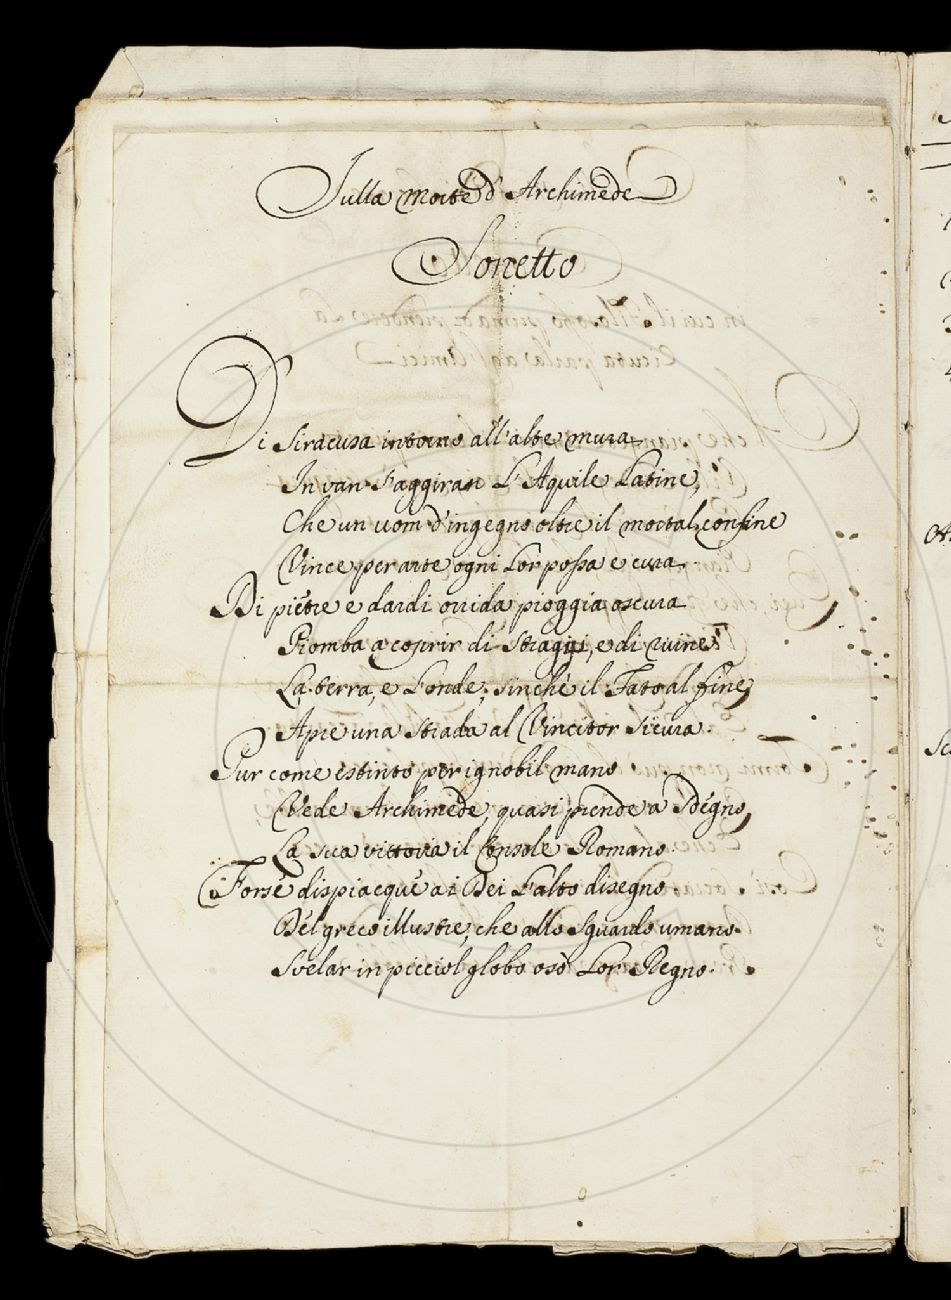 Sulla Morte d'Archimede
Sonetto
Di Siracusa intorno all'alte mura
In van s'aggiran L'Aquile Latine,
Che un uom d'ingegno oltre il mortal confine
Vince per arte ogni Lor possa e cura
Di pietre e dardi orrida pioggia oscura
Piomba a coprir di Straggi, e di ruine
La terra, e L'onde; sinchè il Fato al fine
Apre una Strada al Vincitor sicura.
Pur come estinto per ignobil mano
Vede Archimede, quasi prende a Sdegno
La sua vittoria il Console Romano.
Forse dispiacque ai Dei L'alto disegno
Del greco illustre, che allo Sguardo umano
Svelar in picciol globo osò Lor Regno.